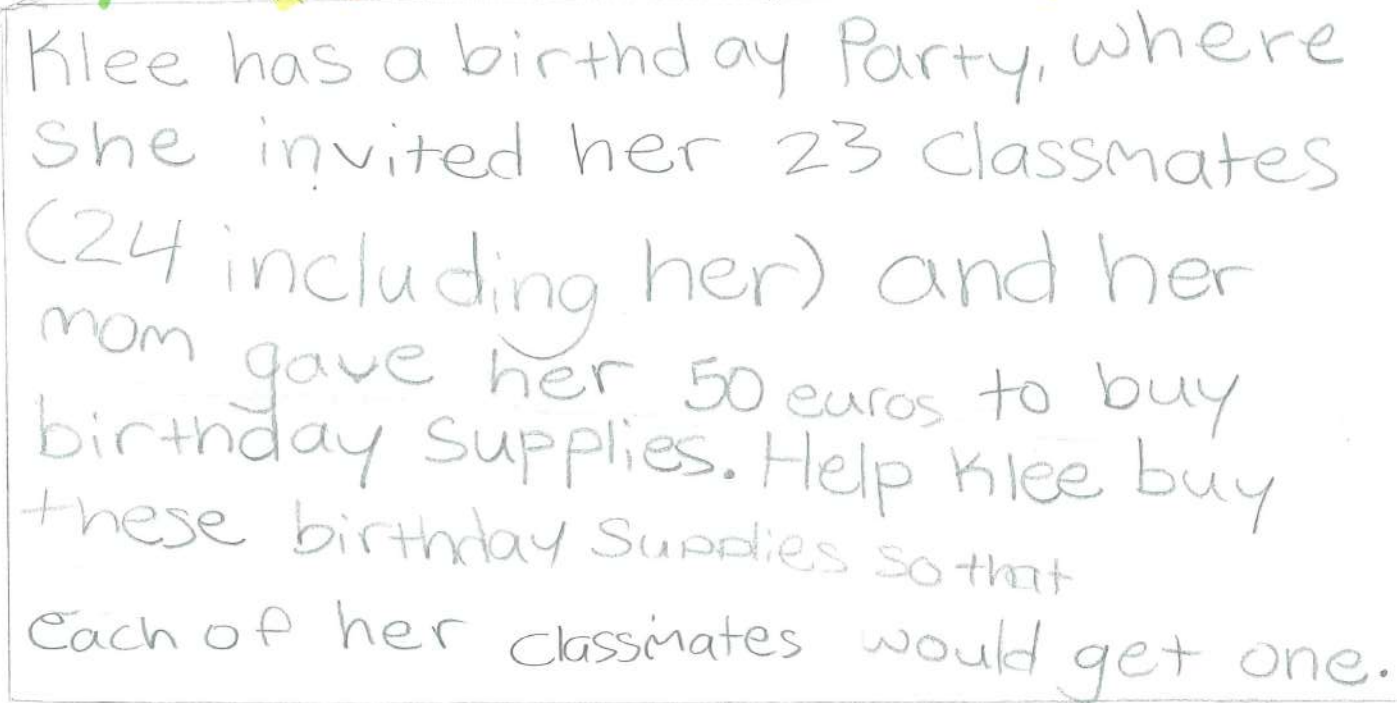 Klee has a birthday Party, where
She invited her 23 classmates
(24 including her) and her
mom gave her 50 euros to buy
birthday supplies. Help Klee buy
these birthday supplies so that
Each of her classmates would get one.